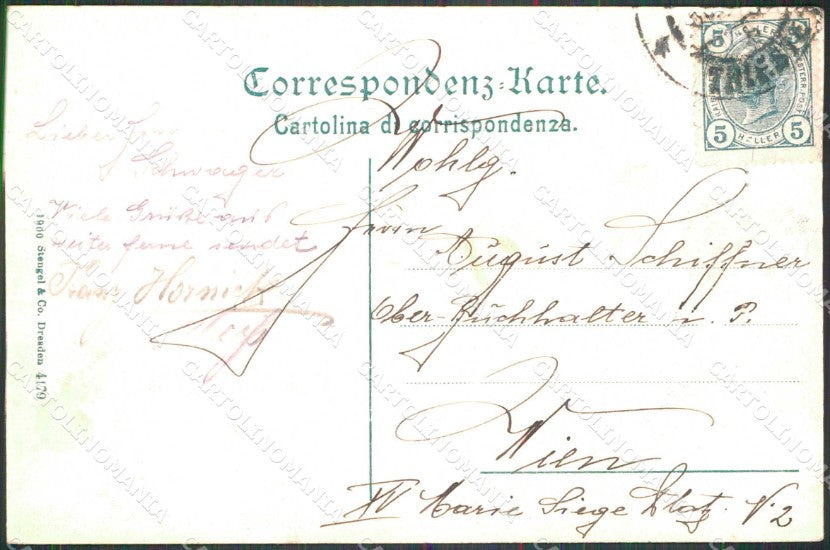 Correspondenz-Karte.
Cartolina di corrispondenza.
Lieber Herr
Schwager
Viele Grüße aus
weiter ferne sendet
Franz
Wohlg.
Herrn
August Schiffner
Ober-Buchhalter i. P.
Wien
XV Marie Siege Platz N. 2
1900 Stengel & Co. Dresden 4179
5 5
5 HELLER 5
TRIEST
CARTOLINOMANIA